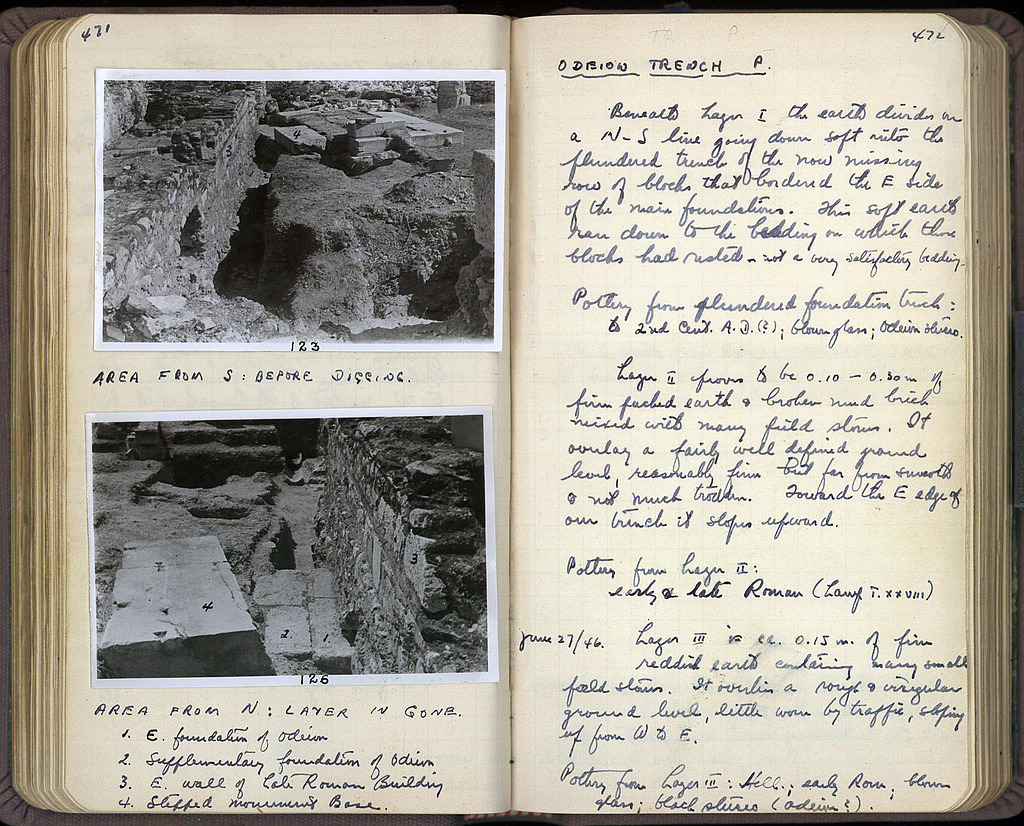 471
4
3
123
AREA FROM S: BEFORE DIGGING.
3
4
2
1
126
AREA FROM N: LAYER IV GONE.
1. E. foundation of Odeion
2. Supplementary foundation of Odeion
3. E. wall of Late Roman Building
4. Stepped monument Base.
472
ODEION TRENCH P.
Beneath Layer I the earth divides on
a N-S line going down soft into the
plundered trench of the now missing
row of blocks that bordered the E side
of the main foundations. This soft earth
ran down to the bedding on which those
blocks had rested - not a very satisfactory bedding.
Pottery from plundered foundation trench:
to 2nd Cent. A.D.(?); blown glass; Odeion stucco.
Layer II proves to be 0.10 - 0.30m of
firm packed earth & broken mud brick
mixed with many field stones. It
overlay a fairly well defined ground
level, reasonably firm but far from smooth
& not much trodden. Toward the E edge of
our trench it slopes upward.
Pottery from Layer II:
early & late Roman (Lamp T. XXVIII)
June 27/46. Layer III is ca. 0.15 m. of firm
reddish earth containing many small
field stones. It overlies a rough & irregular
ground level, little worn by traffic, sloping
up from W to E.
Pottery from Layer III: Hell.; early Rom; blown
glass; black stucco (odeion?).